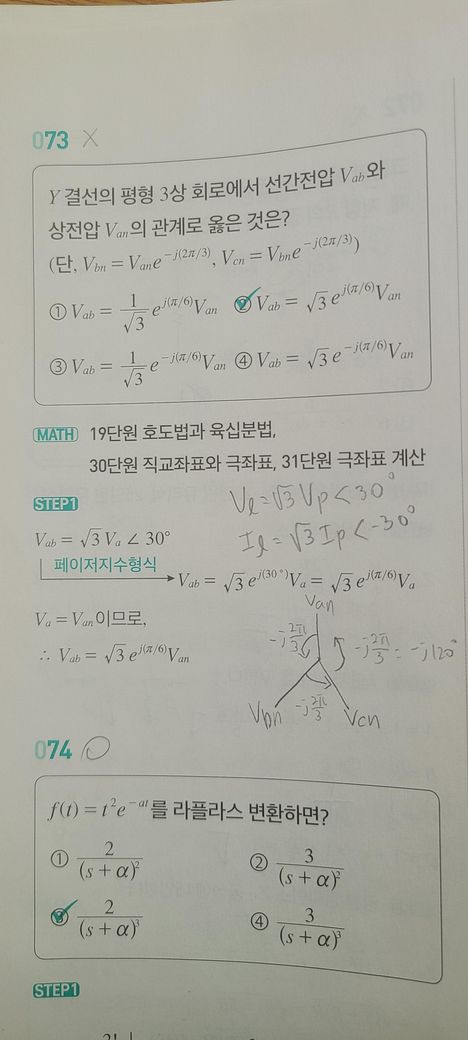 073 X
Y 결선의 평형 3상 회로에서 선간전압 Vab와
상전압 Van의 관계로 옳은 것은?
(단, Vbn = Van e^-j(2π/3), Vcn = Vbn e^-j(2π/3))
① Vab = 1/√3 e^j(π/6) Van ② Vab = √3 e^j(π/6) Van
③ Vab = 1/√3 e^-j(π/6) Van ④ Vab = √3 e^-j(π/6) Van
MATH 19단원 호도법과 육십분법,
30단원 직교좌표와 극좌표, 31단원 극좌표 계산
STEP1
Vl = √3 Vp < 30°
Il = √3 Ip < -30°
Vab = √3 Va ∠ 30°
페이저지수형식
Vab = √3 e^j(30°) Va = √3 e^j(π/6) Va
Va = Van이므로,
∴ Vab = √3 e^j(π/6) Van
Van
-j 2π/3
-j 2π/3 = -j120°
-j 2π/3
Vbn
Vcn
074
f(t) = t² e^-at를 라플라스 변환하면?
① 2/(s + α)² ② 3/(s + α)²
③ 2/(s + α)³ ④ 3/(s + α)³
STEP1